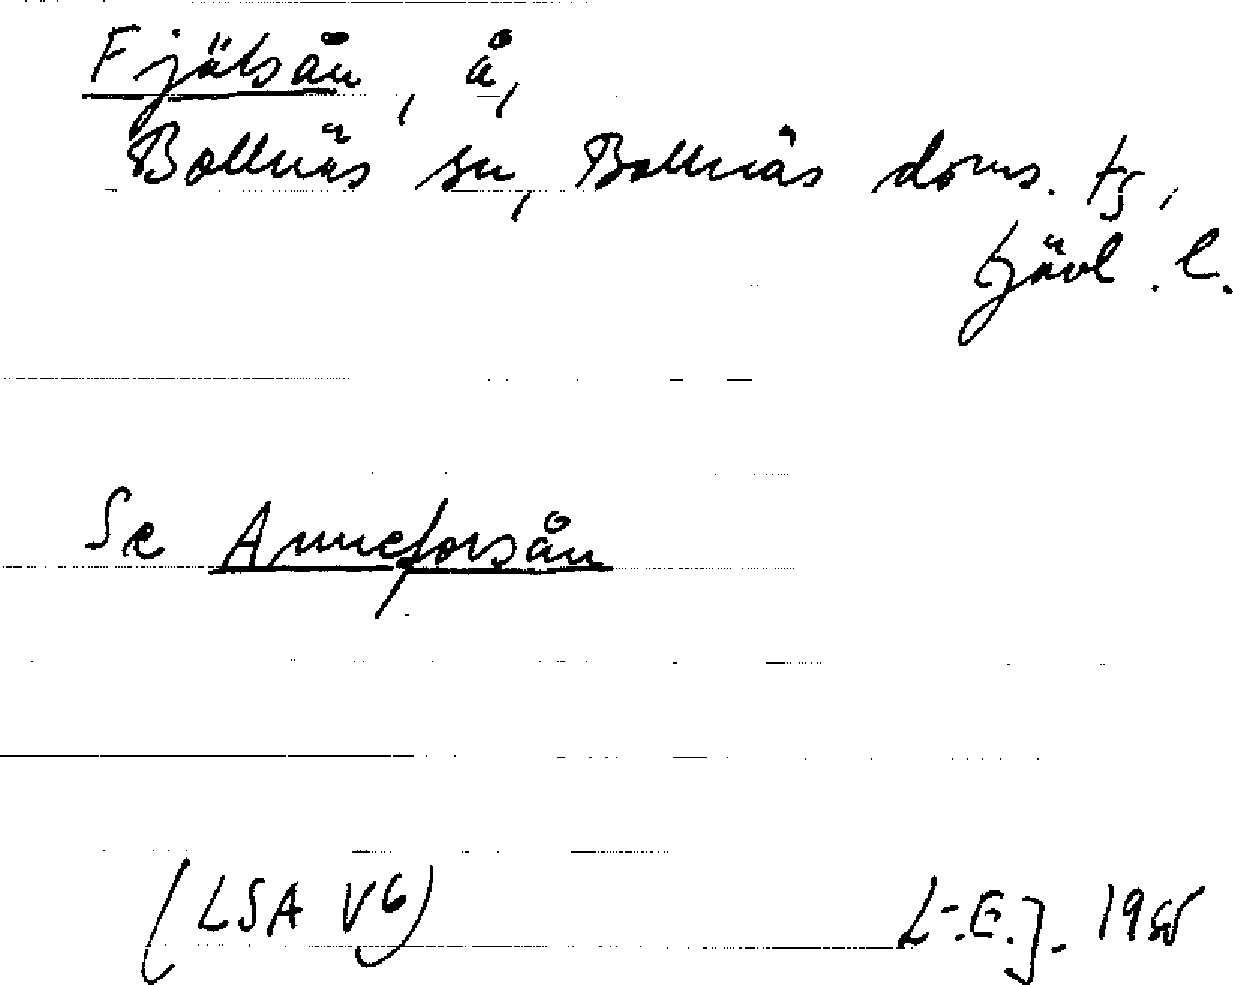 Fjälsån, å,
Bollnäs sn, Bollnäs doms. tg,
Gävl. l.
Se Anneforsån
(LSA V6) L-E.J. 19